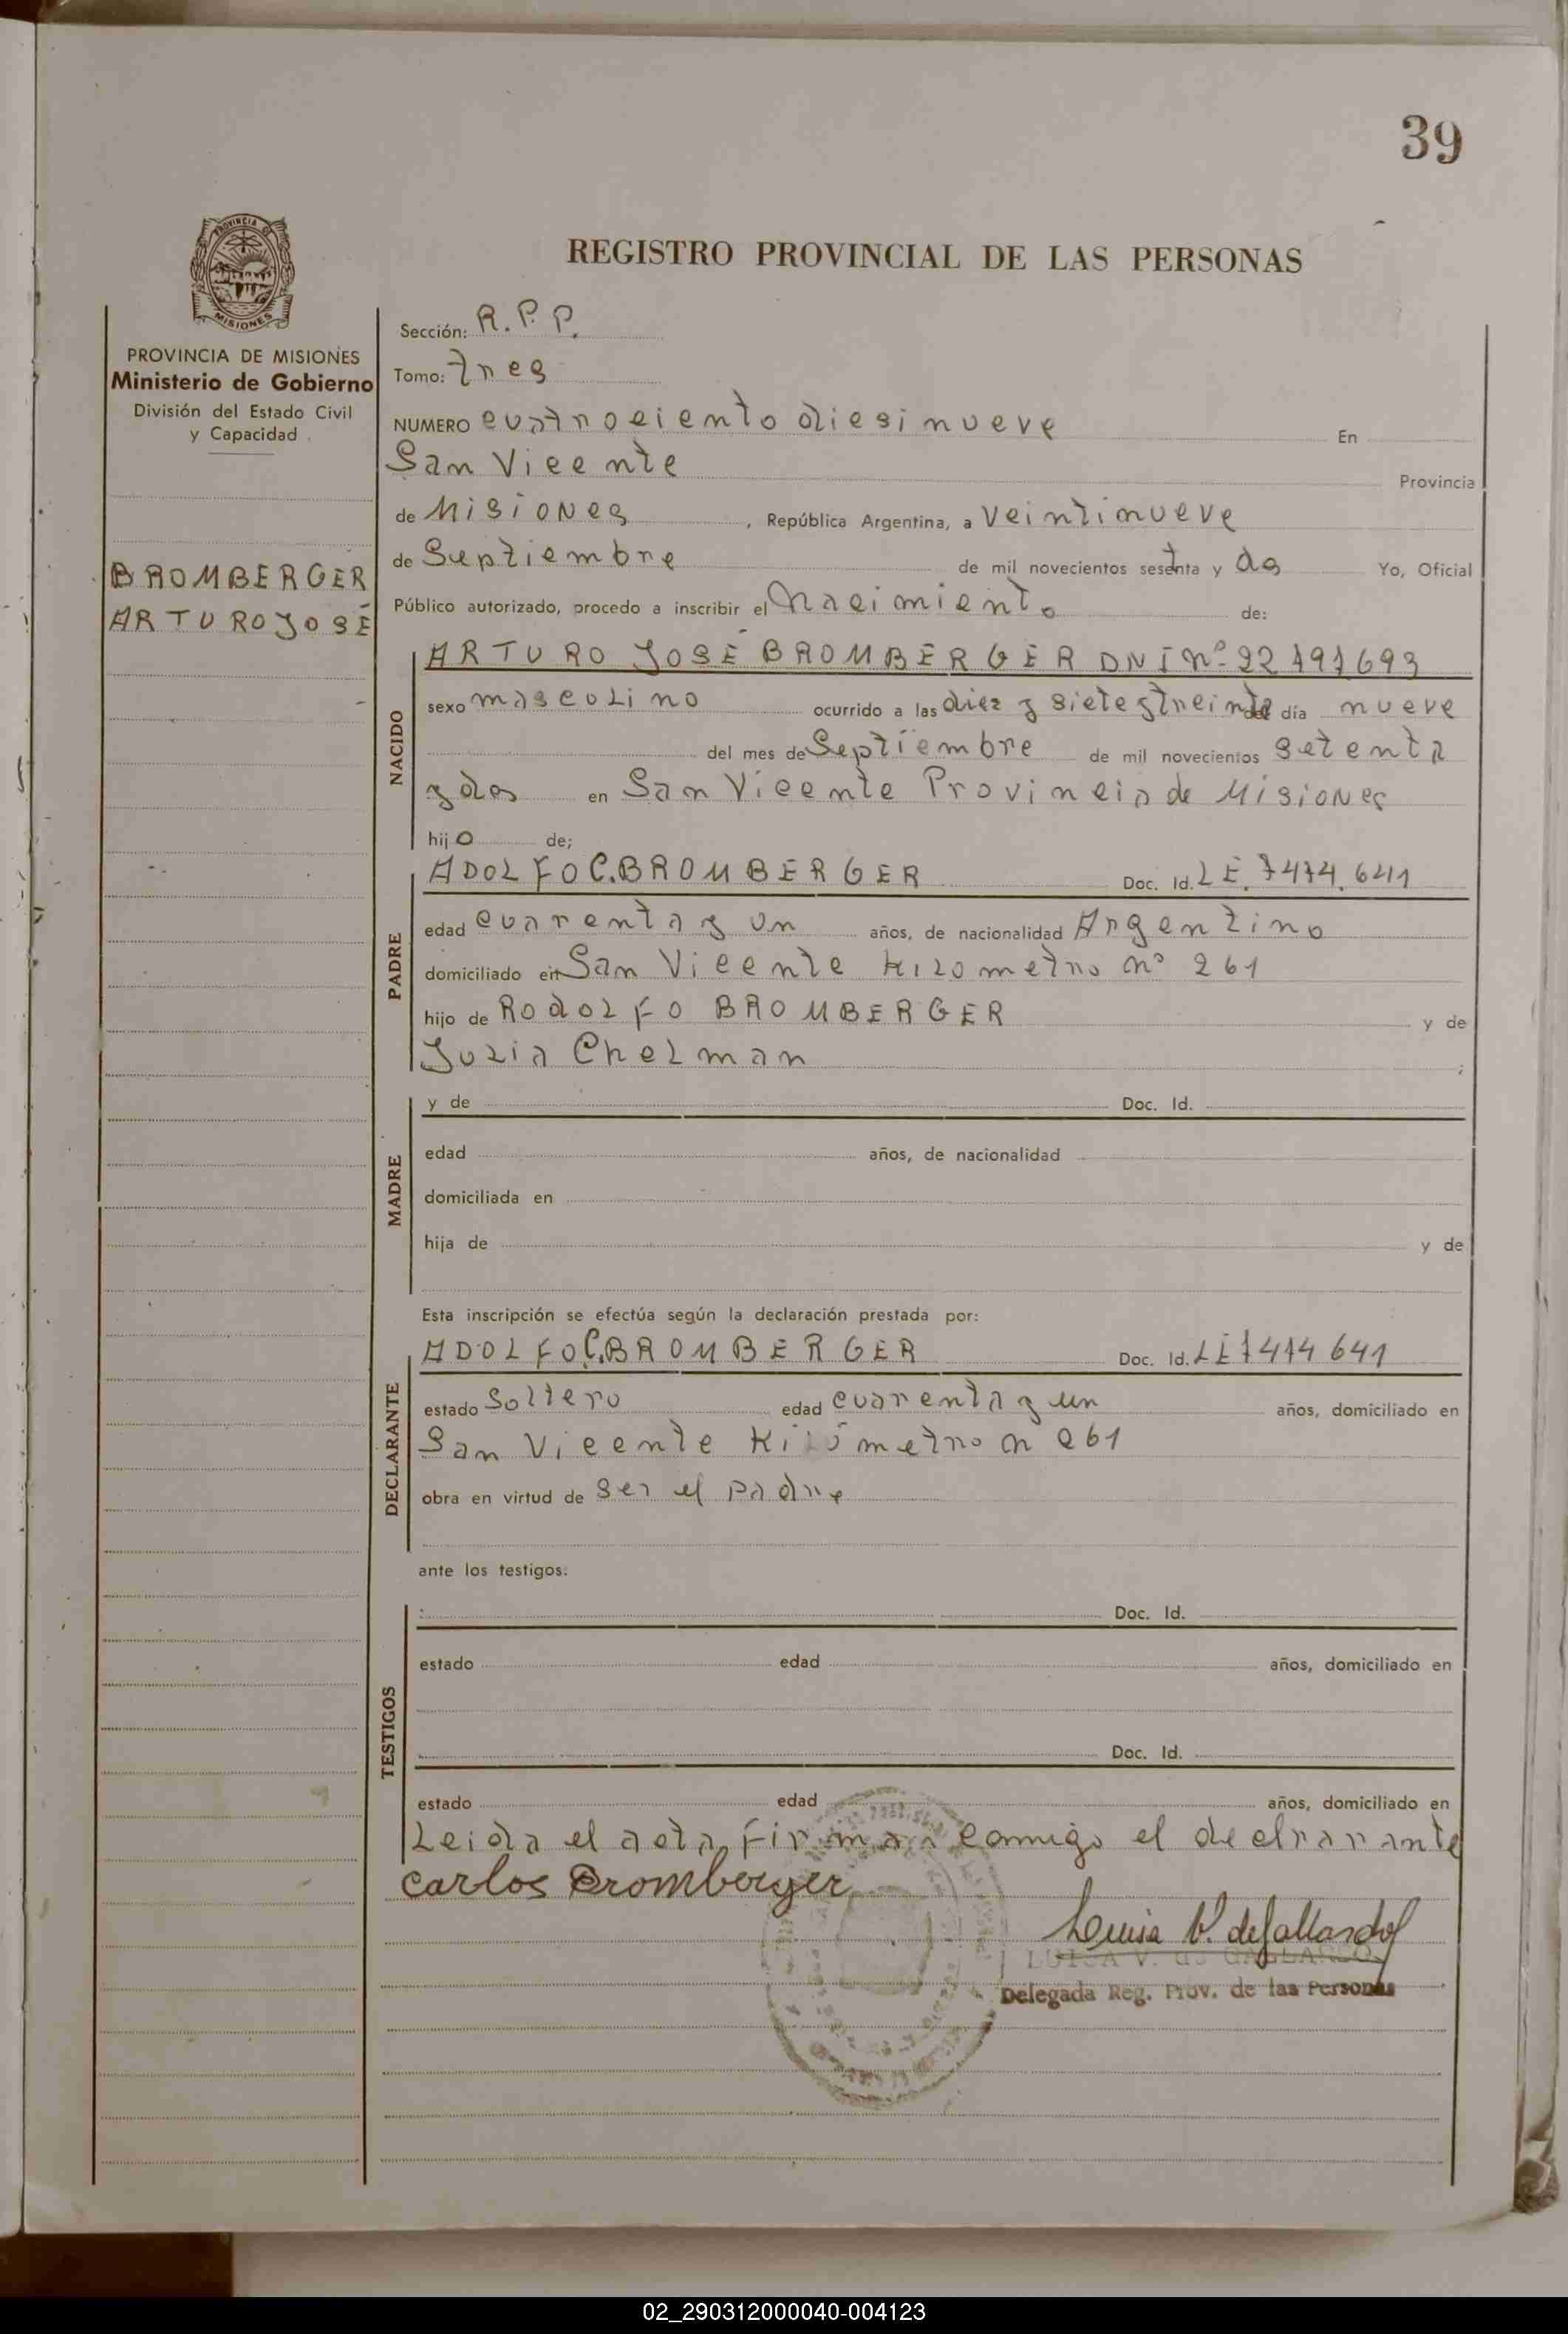 39
REGISTRO PROVINCIAL DE LAS PERSONAS
PROVINCIA DE
MISIONES
PROVINCIA DE MISIONES
Ministerio de Gobierno
División del Estado Civil
y Capacidad
BROMBERGER
ARTURO JOSÉ
Sección: R. P. P.
Tomo: tres
NUMERO cuatrociento diesinueve En
San Vicente Provincia
de Misiones, República Argentina, a veintinueve
de Septiembre de mil novecientos sesetnta y dos Yo, Oficial
Público autorizado, procedo a inscribir el Nacimiento de:
NACIDO
ARTURO JOSÉ BROMBERGER DNI Nº
sexo masculino ocurrido a las diez y siete y treinta del día nueve
del mes de Septiembre de mil novecientos setenta
y dos en San Vicente Provincia de Misiones
hijo de;
PADRE
ADOLFO C. BROMBERGER Doc. Id. L E. 7474. 641
edad cuarenta y un años, de nacionalidad Argentino
domiciliado en San Vicente Kilometro nº 261
hijo de Rodolfo BROMBERGER y de
Julia Chelman ;
MADRE
y de Doc. Id.
edad años, de nacionalidad
domiciliada en
hija de y de
Esta inscripción se efectúa según la declaración prestada por:
DECLARANTE
ADOLFO C. BROMBERGER Doc. Id. L E 7474 641
estado Soltero edad cuarenta y un años, domiciliado en
San Vicente Kilómetro n 261
obra en virtud de ser el padre
ante los testigos:
TESTIGOS
Doc. Id.
estado edad años, domiciliado en
Doc. Id.
estado edad años, domiciliado en
Leida el acta, firman conmigo el declarante
Carlos Bromberger
Luisa V. de Gallardo
LUISA V. de GALLARDO
Delegada Reg. Prov. de las Personas
02_290312000040-004123